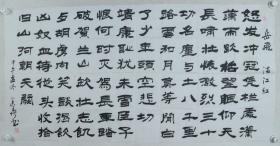 岳飛 滿江紅
怒发冲冠凭栏處瀟
瀟雨歇抬望眼仰天
長嘯壯懷激烈三十
功名塵与土八千里
路雲和月莫等閒白
了少年頭空悲切
靖康恥猶未雪臣子
恨何時灭駕長車踏
破賀兰山缺壯志飢
餐胡虏肉笑談渴飲
匈奴血待從头收拾
旧山河朝天闕